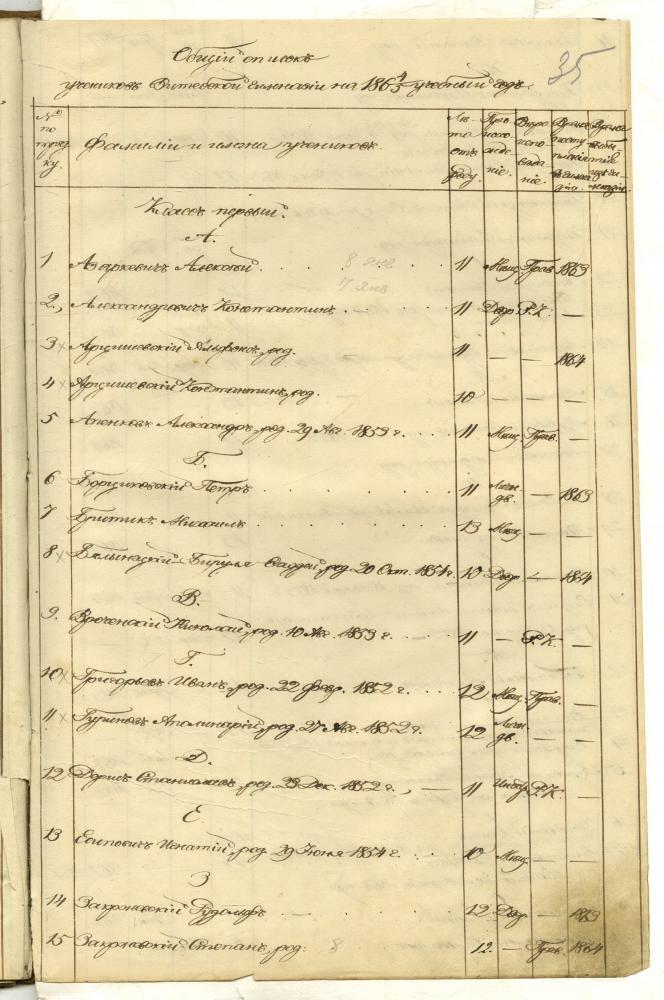 35
Общій списокъ
учениковъ Витебской гимназіи на 1864/5 учебный годъ.
№ по поряд­ку. Фамиліи и имена учениковъ. Лѣта отъ роду. Происхожденіе. Вѣроисповѣданіе. Время поступленія въ гимназію. Время
Классъ первый.
А.
1 Азаркевичъ Алексѣй 8 янв. 11 Мѣщ. Прав. 1863
7 янв
2, Александровичъ Константинъ 11 Двор. Р.К. —
3 × Арцишевскій Альфонсъ, род. 11 — — 1864
4 × Арцишевскій Константинъ, род. 10 — — —
5 Апенковъ Александръ, род. 29 Авг. 1853 г. 11 Мѣщ. Прав. —
Б.
6 Борщиковскій Петръ 11 Личн. дв. — 1863
7 Михаилъ 13 Мѣщ. — —
8 × Бялыницкій-Бируля Фаддей, род. 20 Окт. 1854 г. 10 Двор. — 1864
В.
9. Вроченскій Николай, род. 10 Авг. 1853 г. — 11 — Р.К. —
Г.
10 × Григорьевъ Иванъ, род. 22 февр. 1852 г. 12 Мѣщ. Прав. —
11 × Аполинарій, род. 27 Авг. 1852 г. 12 Личн. дв. — —
Д.
12 Станиславъ, род. 23 Дек. 1852 г., — 11 Р.К. —
Е.
13 Есиповичъ Игнатій, род. 29 Іюня 1854 г. 10 Мѣщ. — —
З
14 Закржевскій Рудольфъ — 12 Двор. — 1863
15 Закржевскій Степанъ, род: 8 12. — Прав. 1864